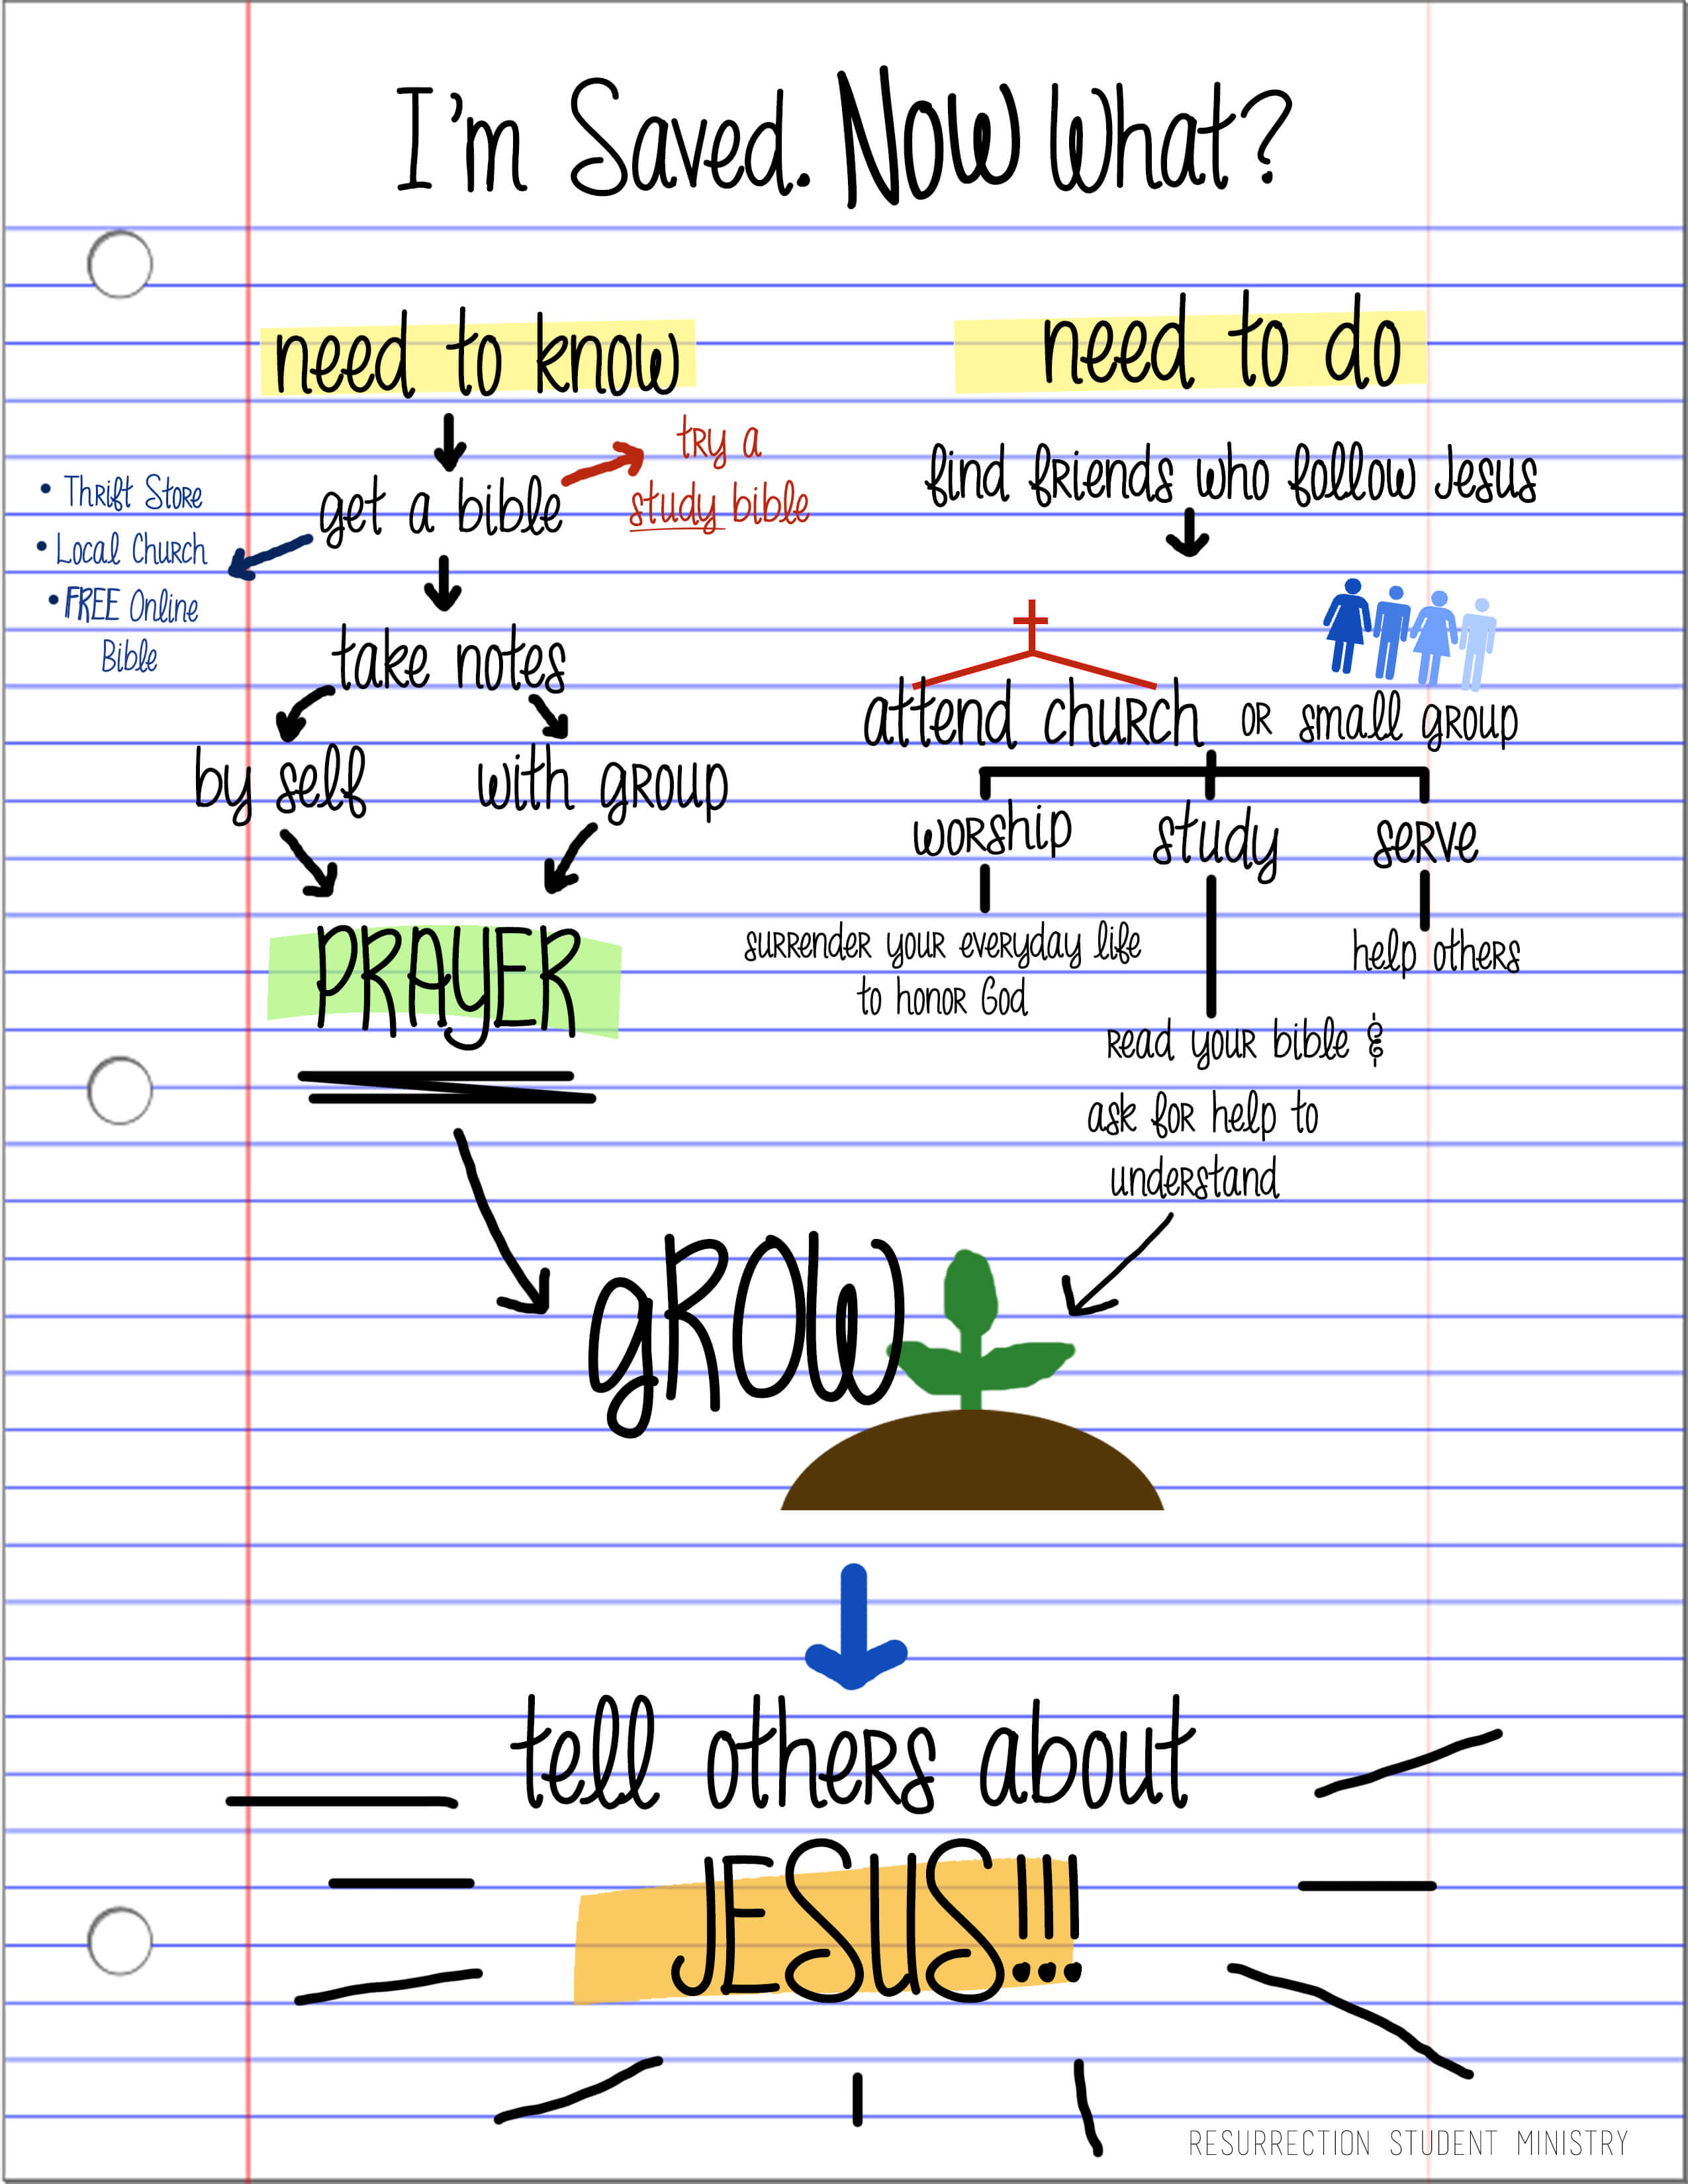 I'm Saved. NOW What?
need to know
need to do
get a bible
try a
study bible
• Thrift Store
• Local Church
• FREE Online
Bible
take notes
by self
with group
PRAYER
find friends who follow Jesus
attend church or small group
worship
study
serve
surrender your everyday life
to honor God
help others
read your bible &
ask for help to
understand
gROW
tell others about
JESUS!!!
RESURRECTION STUDENT MINISTRY